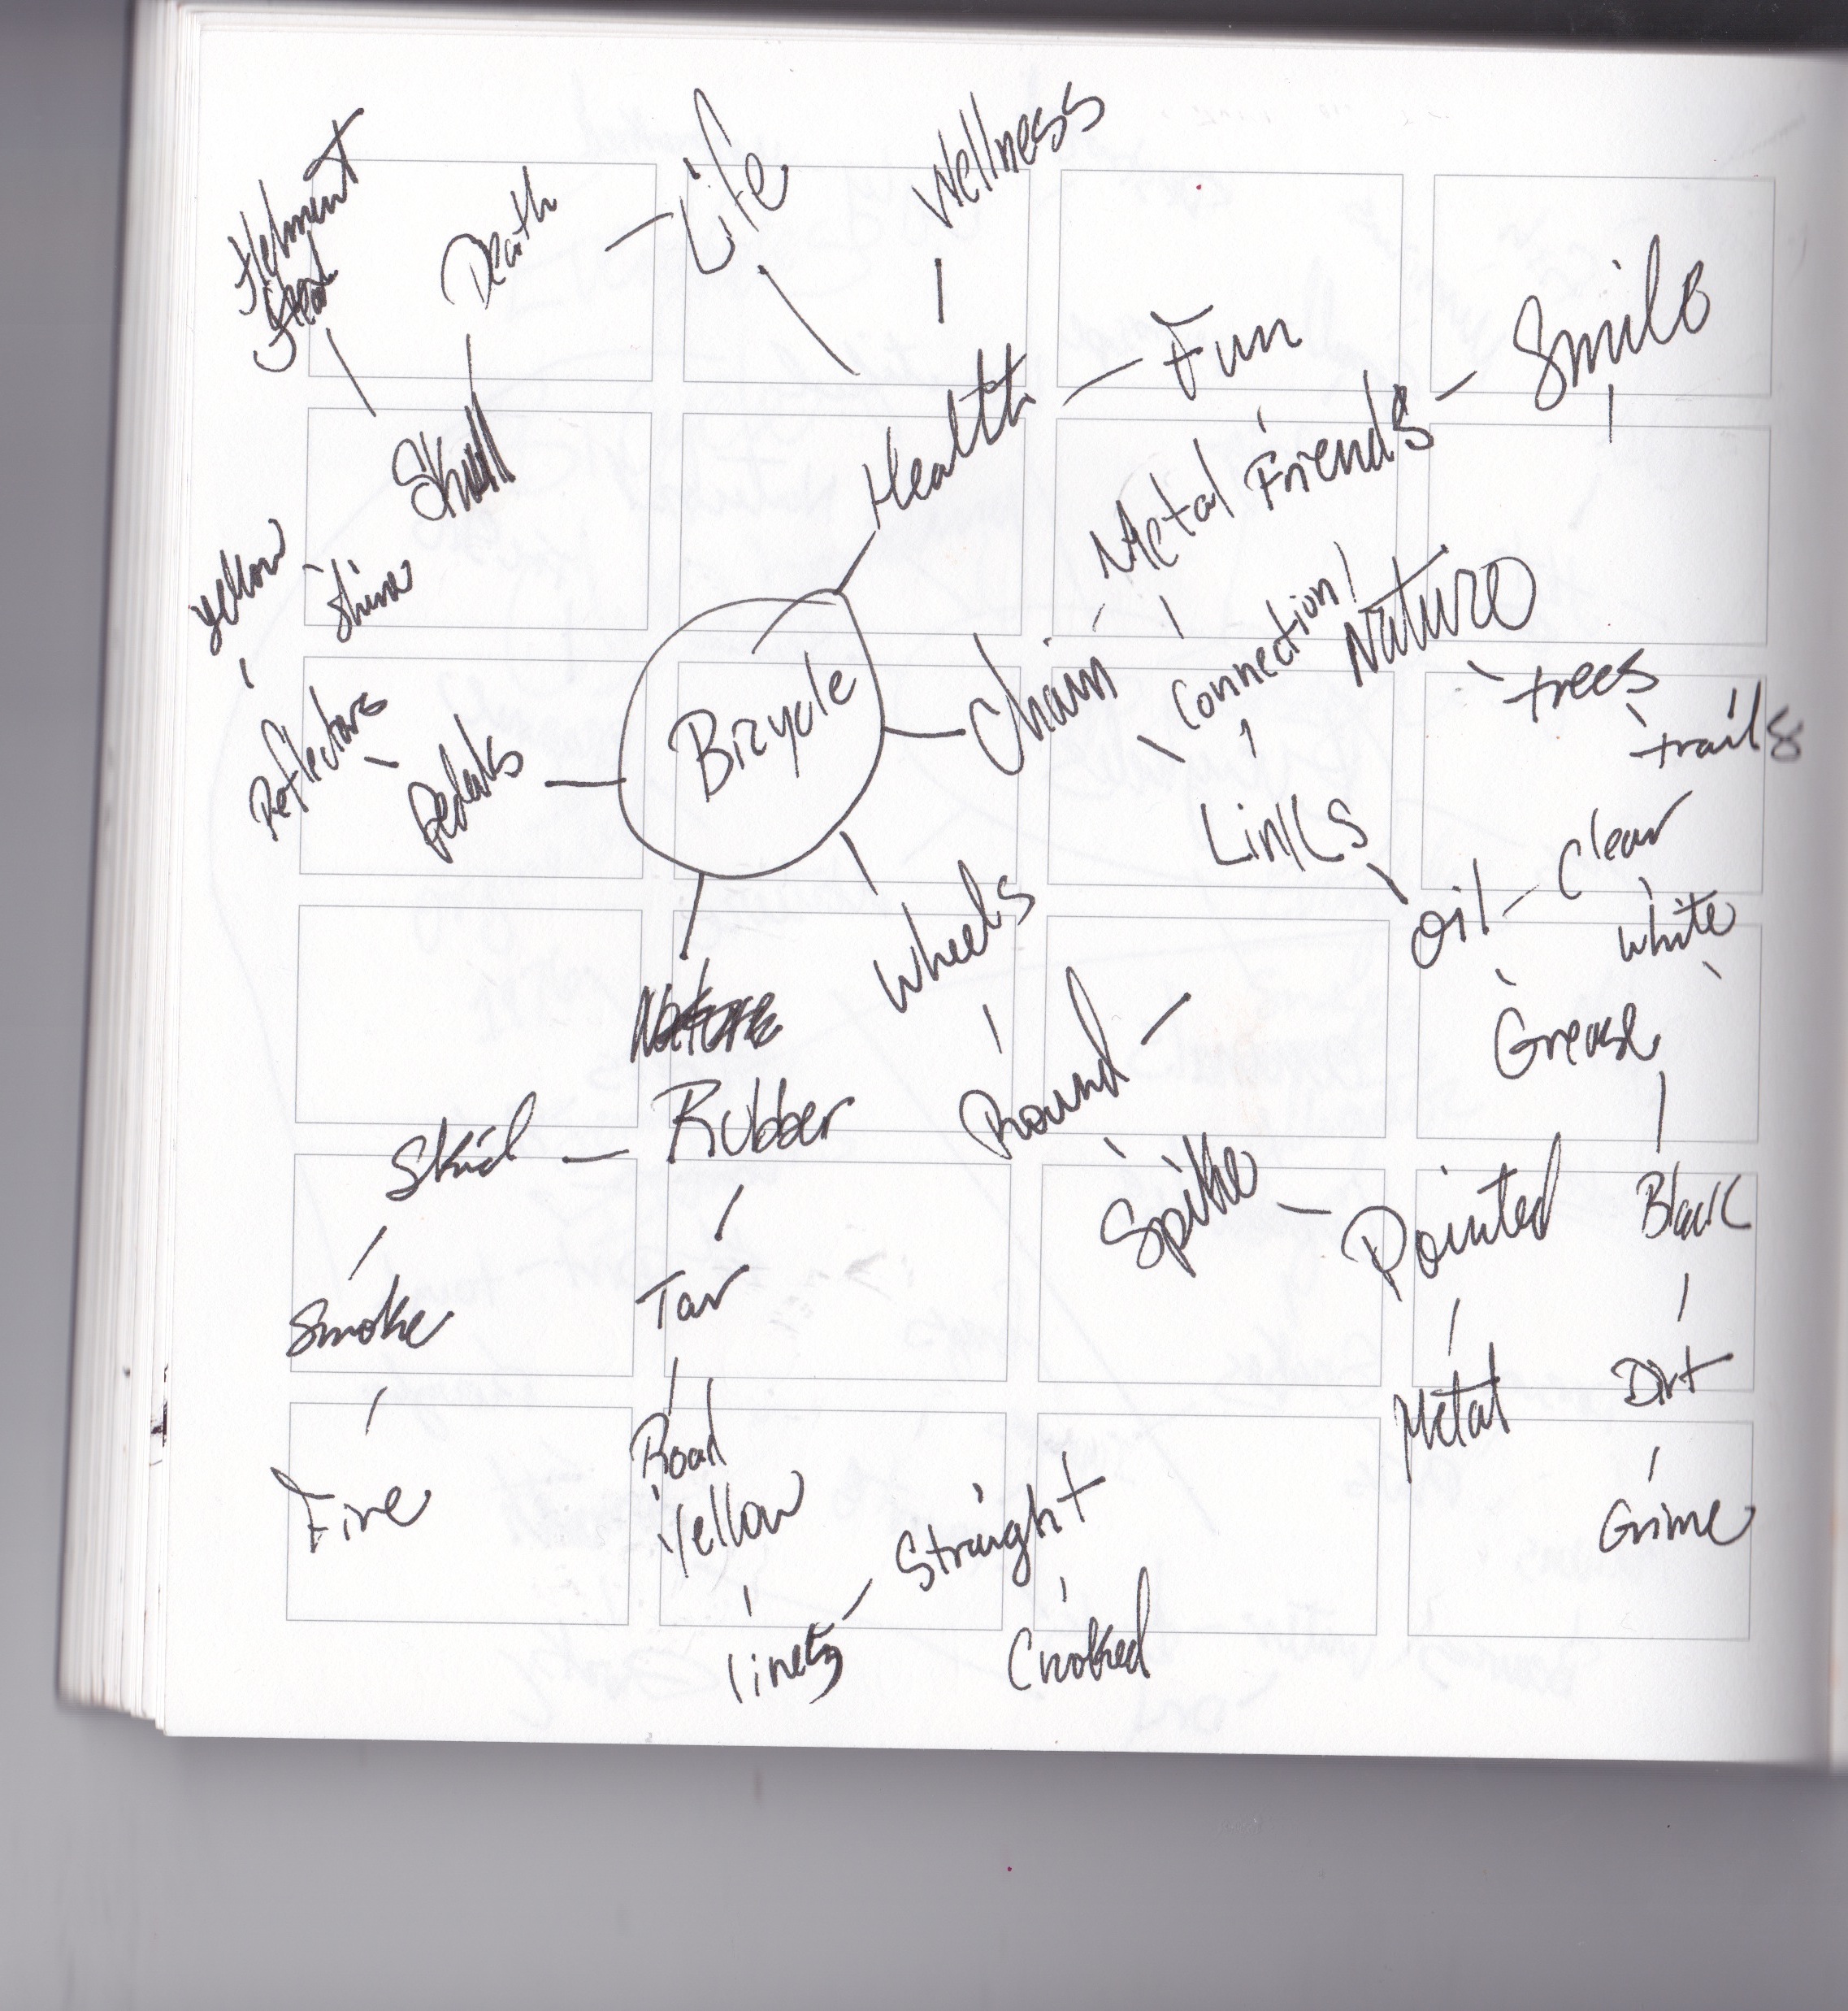 Wellness
Life
Death
Helment
Head
Skull
Health
Fun
Smile
Metal Friends
yellow
Shine
Connection/
Nature
trees
trails
Reflectors
Pedals
Bizycle
Chain
Links
Oil
Clear
white
Grease
Wheels
Nature
Rubber
Round
Skid
Spike
Pointed
Black
Smoke
Tar
Metal
Dirt
Fire
Road
Yellow
Straight
Grime
Crooked